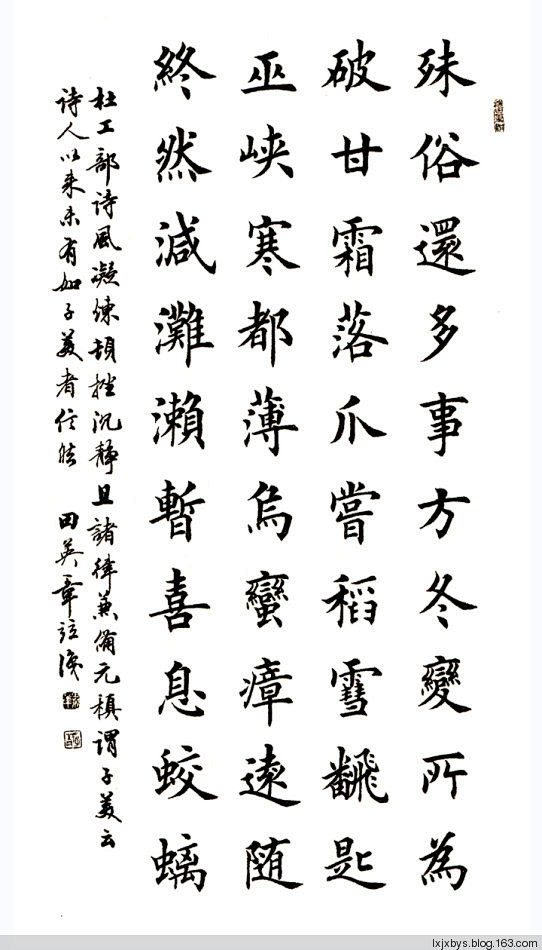 殊俗還多事方冬變所為
破甘霜落爪嘗稻雪飜匙
巫峡寒都薄烏蠻瘴遠随
終然減灘瀨暫喜息蛟螭
杜工部诗風凝練頓挫沉静且諸律兼備元稹謂子美云
诗人以来未有如子美者信然 田英章
lxjxbys.blog.163.com